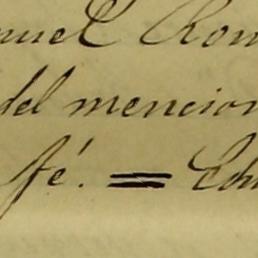 nuel Rom
del mencion
fé. = Edu